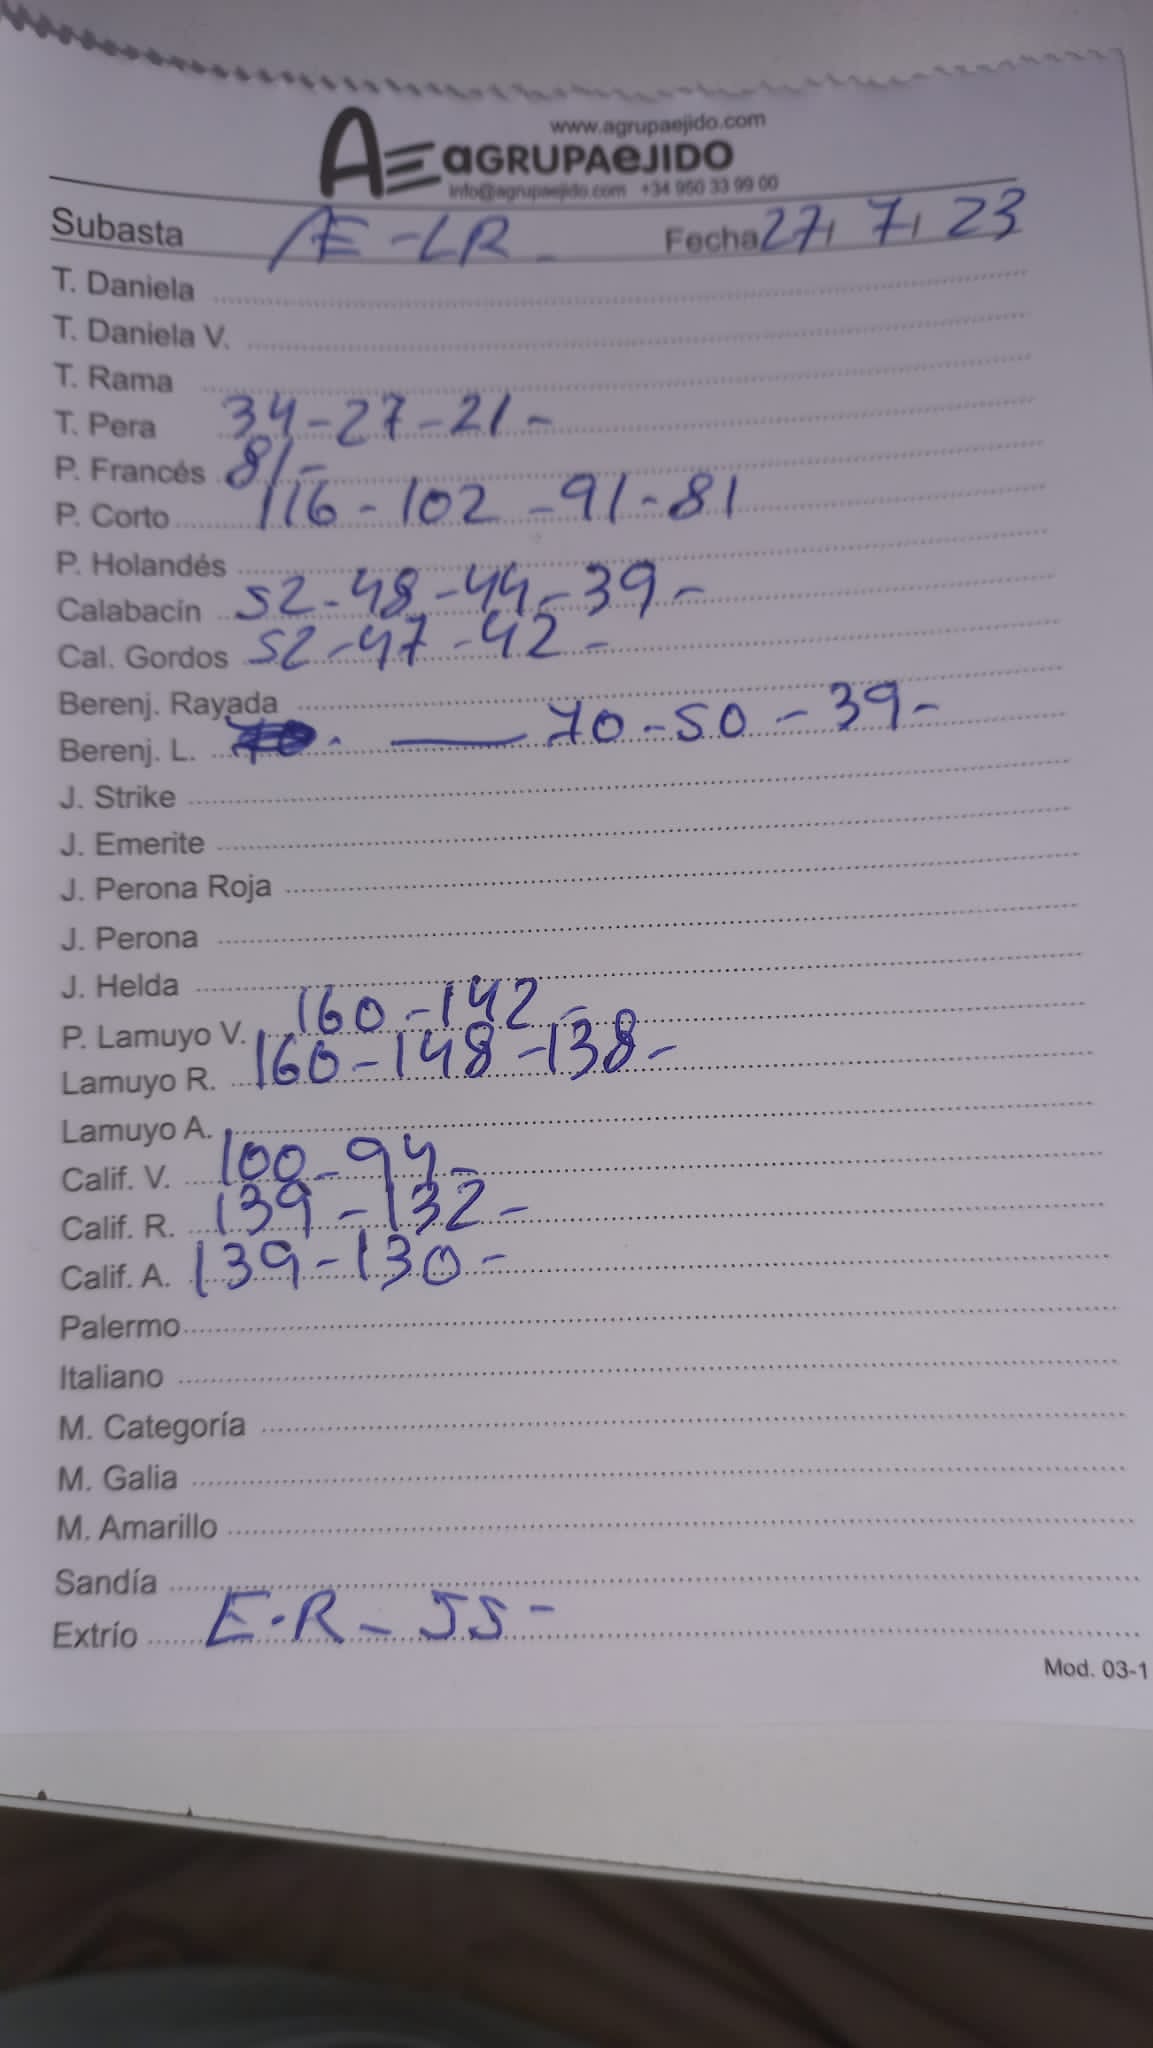 www.agrupaejido.com
AE aGRUPAeJIDO
info@agrupaejido.com +34 950 33 99 00
Subasta AE-LR- Fecha 27, 7, 23
T. Daniela
T. Daniela V.
T. Rama
T. Pera 34-27-21-
P. Francés 81-
P. Corto 116-102-91-81
P. Holandés
Calabacín 52-48-44-39-
Cal. Gordos 52-47-42-
Berenj. Rayada
Berenj. L. — 70-50-39-
J. Strike
J. Emerite
J. Perona Roja
J. Perona
J. Helda
P. Lamuyo V. 160-142-
Lamuyo R. 160-148-138-
Lamuyo A.
Calif. V. 100-94-
Calif. R. 139-132-
Calif. A. 139-130-
Palermo
Italiano
M. Categoría
M. Galia
M. Amarillo
Sandía
Extrío E.R-55-
Mod. 03-1